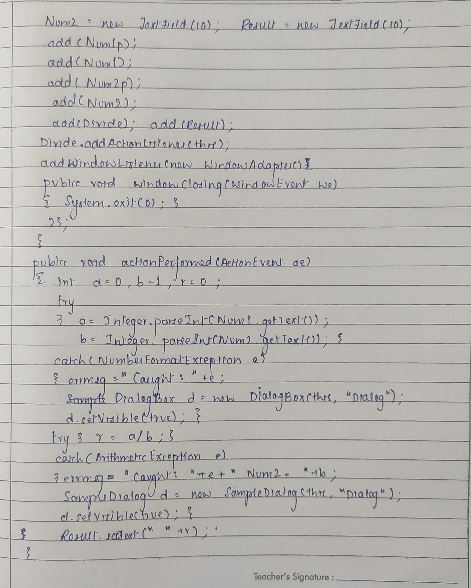 Num2 = new TextField(10); Result = new TextField(10);
add(Num1p);
add(Num1);
add(Num2p);
add(Num2);
add(Divide); add(Result);
Divide.addActionListener(this);
addWindowListener(new WindowAdapter(){
public void windowClosing(WindowEvent we)
{ System.exit(0); }
});
}
public void actionPerformed(ActionEvent ae)
{ int a=0, b=1, r=0;
try
{ a= Integer.parseInt(Num1.getText());
b= Integer.parseInt(Num2.getText()); }
catch(NumberFormatException e)
{ errmsg = "Caught: "+e;
DialogBox d = new DialogBox(this, "Dialog");
d.setVisible(true); }
try { r = a/b; }
catch(ArithmeticException e)
{ errmsg = "Caught: "+e+" Num2= "+b;
SampleDialog d = new SampleDialog(this, "Dialog");
d.setVisible(true); }
} Result.setText(" "+r);
}
Teacher's Signature :